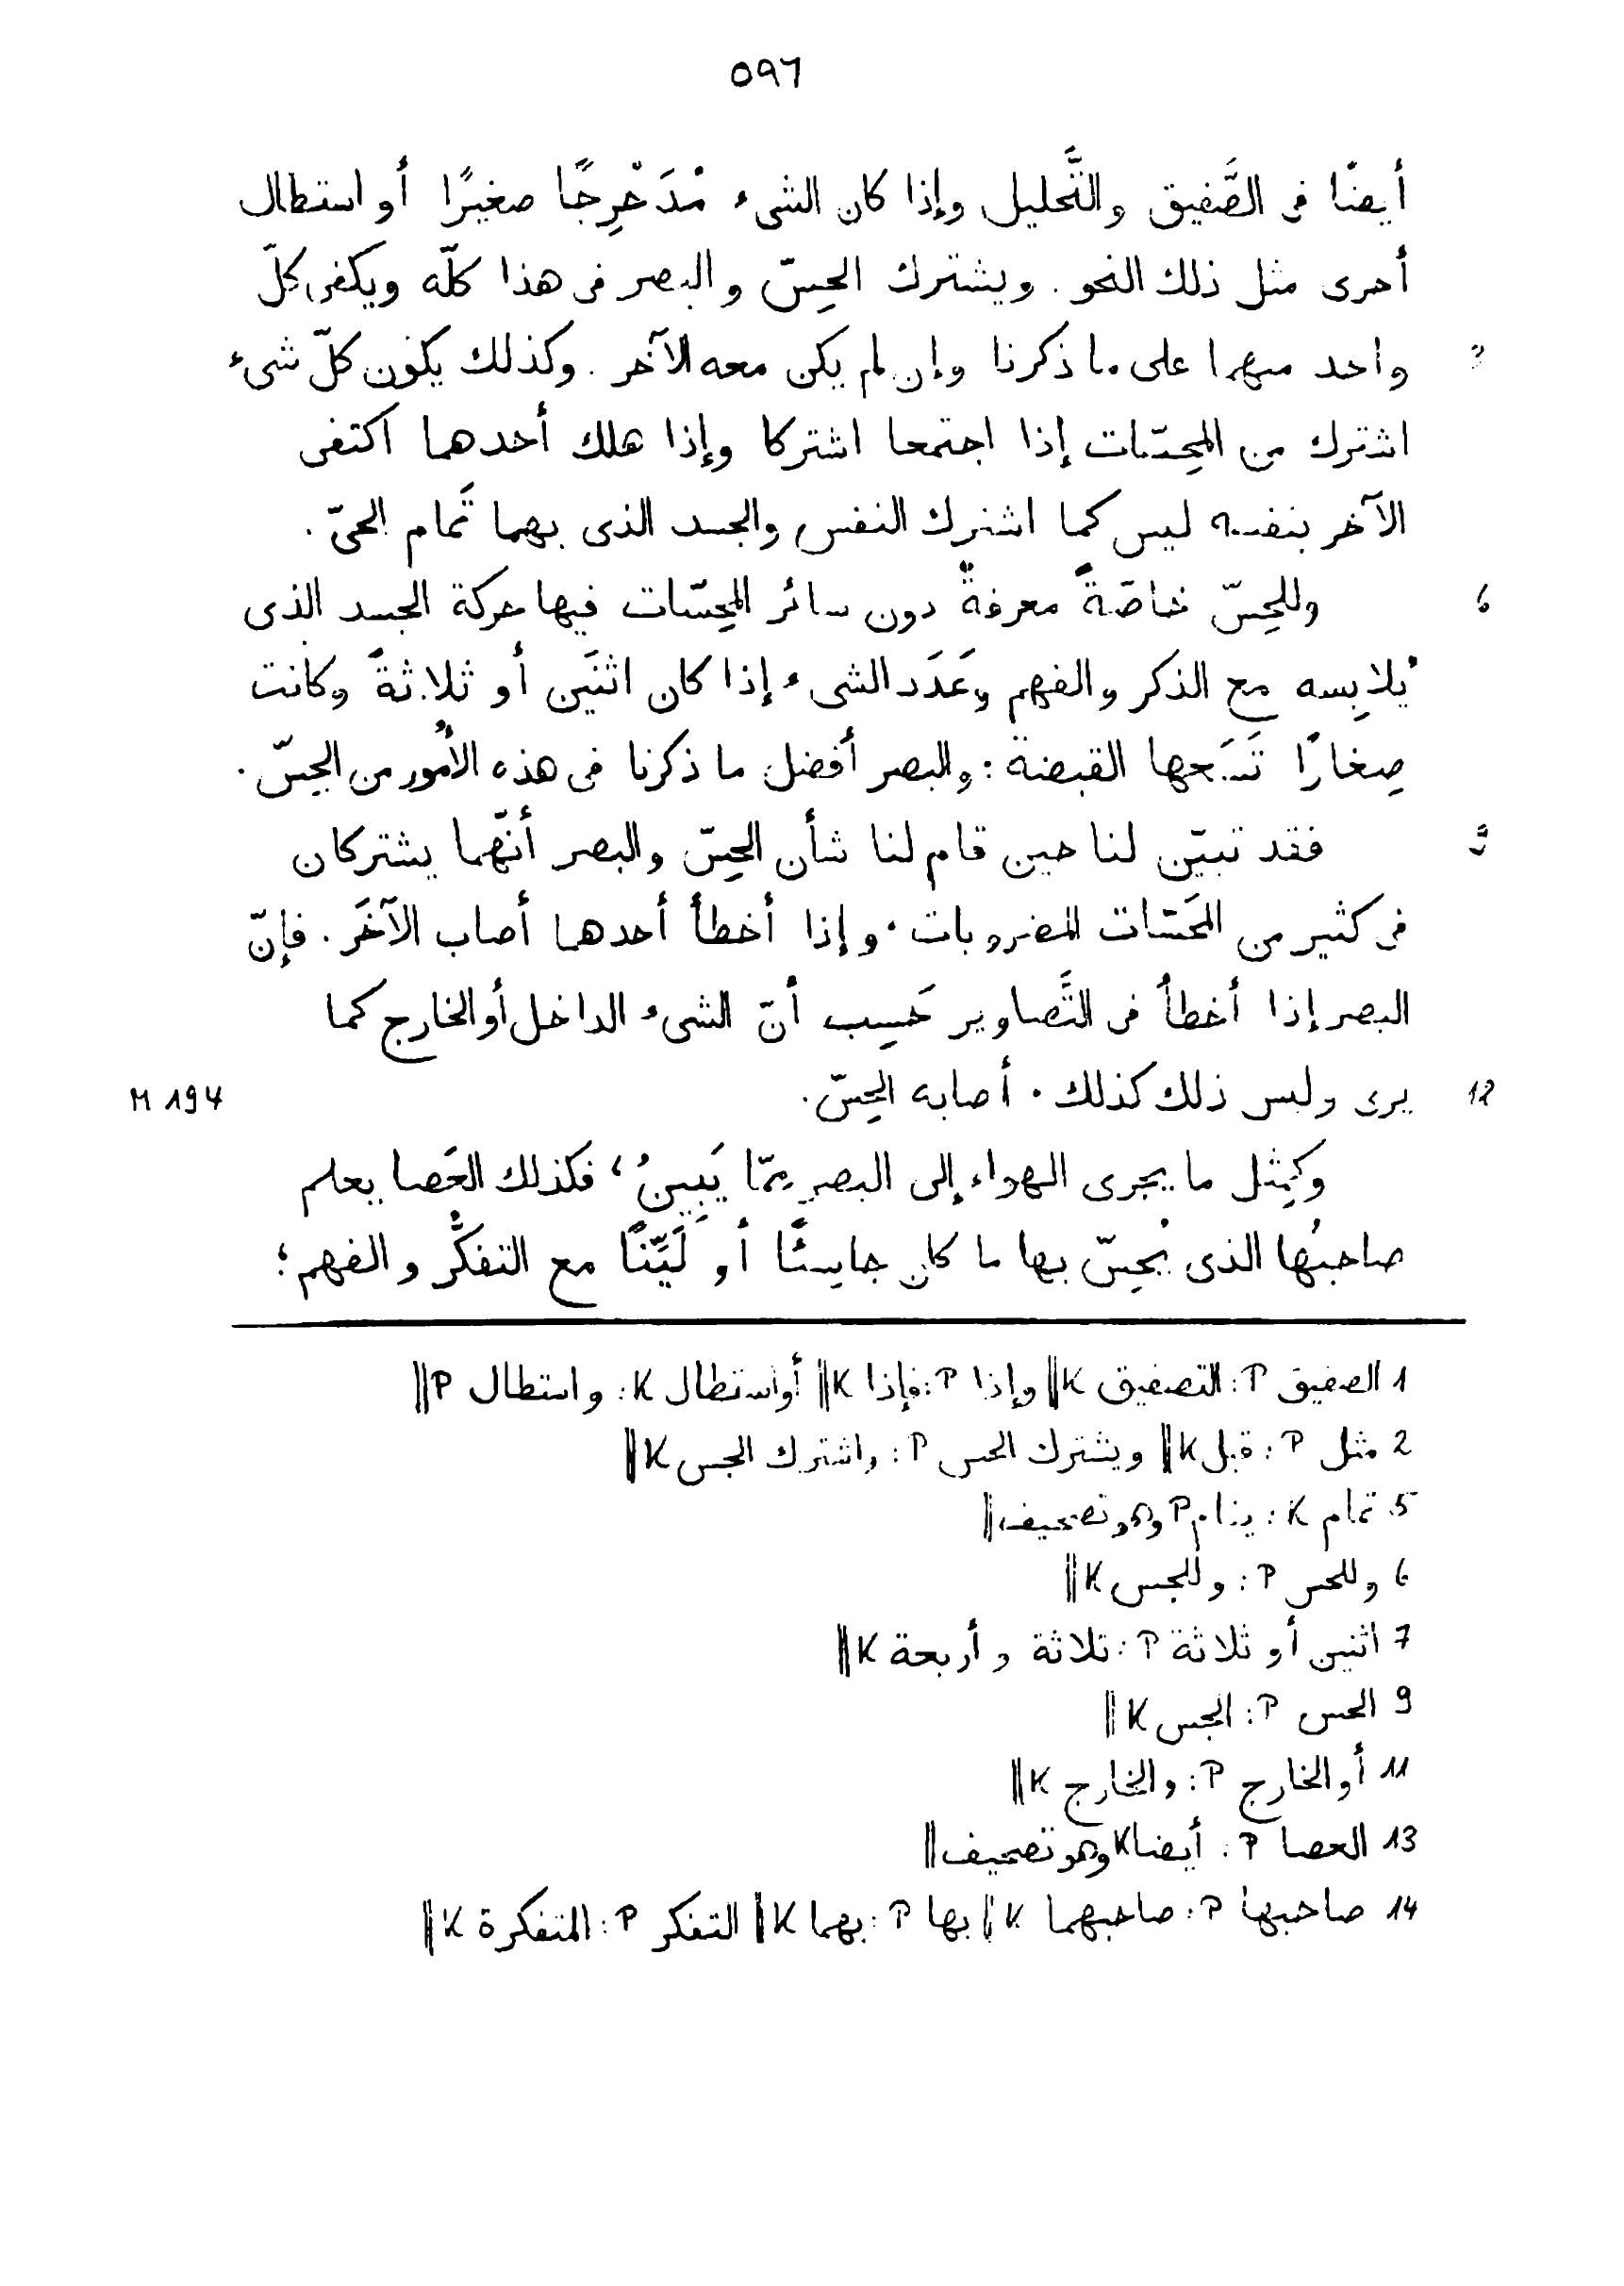 ٥٩٦
أيضًا فى الصَّفيق والتَّحليل وإذا كان الشىء مُدَحْرِجًا صغيرًا أو استطال
أحرى مثل ذلك النحو. ويشترك الحِسّ والبصر فى هذا كلّه ويكفى كلّ
3 واحد منهما على ما ذكرنا وإن لم يكن معه الآخر. وكذلك يكون كلّ شىء
اشترك من المحِسّات إذا اجتمعا اشتركا وإذا هلك أحدهما اكتفى
الآخر بنفسه ليس كما اشترك النفس والجسد الذى بهما تَمام الحىّ.
6 وللحِسّ خاصّةً معرفةٌ دون سائر المحِسّات فيها حركة الجسد الذى
يُلابِسه مع الذكر والفهم وعَدَد الشىء إذا كان اثنَين أو ثلاثةً وكانت
صِغارًا تَسَعها القبضة: والبصر أفضل ما ذكرنا فى هذه الأمُور من الحِسّ.
9 فقد تبيّن لنا حين قام لنا شأن الحِسّ والبصر أنّهما يشتركان
فى كثير من المحَسّات المضروبات. وإذا أخطأ أحدهما أصاب الآخَر. فإنّ
البصر إذا أخطأ فى التَّصاوير حَسِب أنّ الشىء الداخل أو الخارج كما
12 يرى وليس ذلك كذلك. أصابه الحِسّ.
M 194
وكمِثل ما يجرى الهواء إلى البصر ممّا يَبِينُ، فكذلك العَصا يعلم
صاحبُها الذى يُحِسّ بها ما كان جاسئًا أو لَيِّنًا مع التفكُّر والفهم؛
1 الصفيق P: التصفيق K ‖ وإذا P: فإذا K ‖ أو استطال K: واستطال P ‖
2 مثل P: قبل K ‖ ويشترك الحس P: واشترك الجس K ‖
5 تمام K: ينام P وهو تصحيف ‖
6 وللحس P: وللجس K ‖
7 اثنين أو ثلاثة P: ثلاثة وأربعة K ‖
9 الحس P: الجس K ‖
11 أو الخارج P: والخارج K ‖
13 العصا P: أيضا K وهو تصحيف ‖
14 صاحبها P: صاحبهما K ‖ بها P: بهما K ‖ التفكر P: المتفكرة K ‖